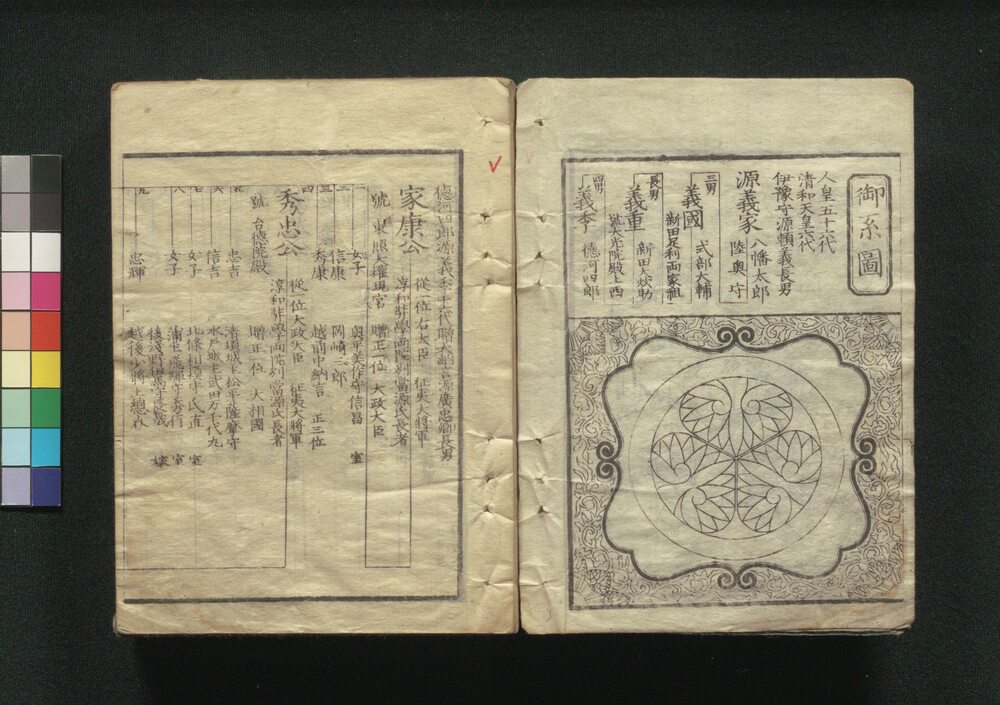 御系圖
人皇五十六代
清和天皇六代
伊豫守源頼義長男
源義家 八幡太郎
陸奥守
三男
義國 式部大輔
新田足利両家祖
長男
義重 新田大炊助
號大光院殿上西
四男
義季 徳河四郎
徳河四郎源義季十 代贈大納言源廣忠卿長男
家康公 從一位右大臣 征夷大將軍
淳和奨學両院別當源氏長者
號 東照大權現宮 贈正一位 大政大臣
女子 奥平美作守信昌 室
二 信康 岡崎三郎
三 秀康 越前中納言 正三位
四
秀忠公 從一位大政大臣 征夷大將軍
淳和奨學両院別當源氏長者
號 台徳院殿 贈正一位 大相國
五 忠吉 清須城主松平薩摩守
六 信吉 水戸城主武田万千代丸
七 女子 北條相模守氏直 室
八 女子 蒲生飛騨守秀行 室
後淺野但馬守長晟 嫁
九 忠輝 越後少將上總介